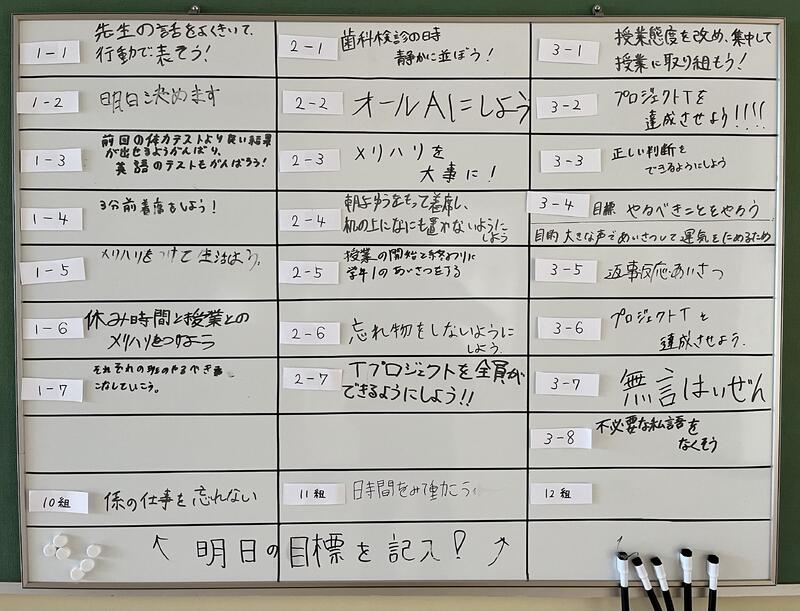 1-1
先生の話をよくきいて、
行動で表そう!
1-2
明日決めます
1-3
前回の体力テストより良い結果
が出せるようがんばり、
英語のテストもがんばろう!
1-4
3分前着席をしよう!
1-5
メリハリをつけて生活しよう。
1-6
休み時間と授業との
メリハリをつけよう
1-7
それぞれの班のやるべき事
こなしていこう。
10組
係の仕事を忘れない
2-1
歯科検診の日時
静かに並ぼう!
2-2
オールAにしよう
2-3
メリハリを
大事に!
2-4
をもって着席し、
机の上になにも置かないように
しよう
2-5
授業の開始と終わりに
学年1のあいさつをする
2-6
忘れ物をしないように
しよう.
2-7
Tプロジェクトを全員が
できるようにしよう!!
11組
時間をみて動こう
3-1
授業態度を改め、集中して
授業に取り組もう!
3-2
プロジェクトTを
達成させよう!!!!
3-3
正しい判断を
できるようにしよう
3-4
目標 やるべきことをやろう
目的 大きな声であいさつして運気をためるため
3-5
返事・反応・あいさつ
3-6
プロジェクトTを
達成させよう.
3-7
無言はいぜん
3-8
不必要な私語を
なくそう
12組
↖ 明日の目標を記入! ↗